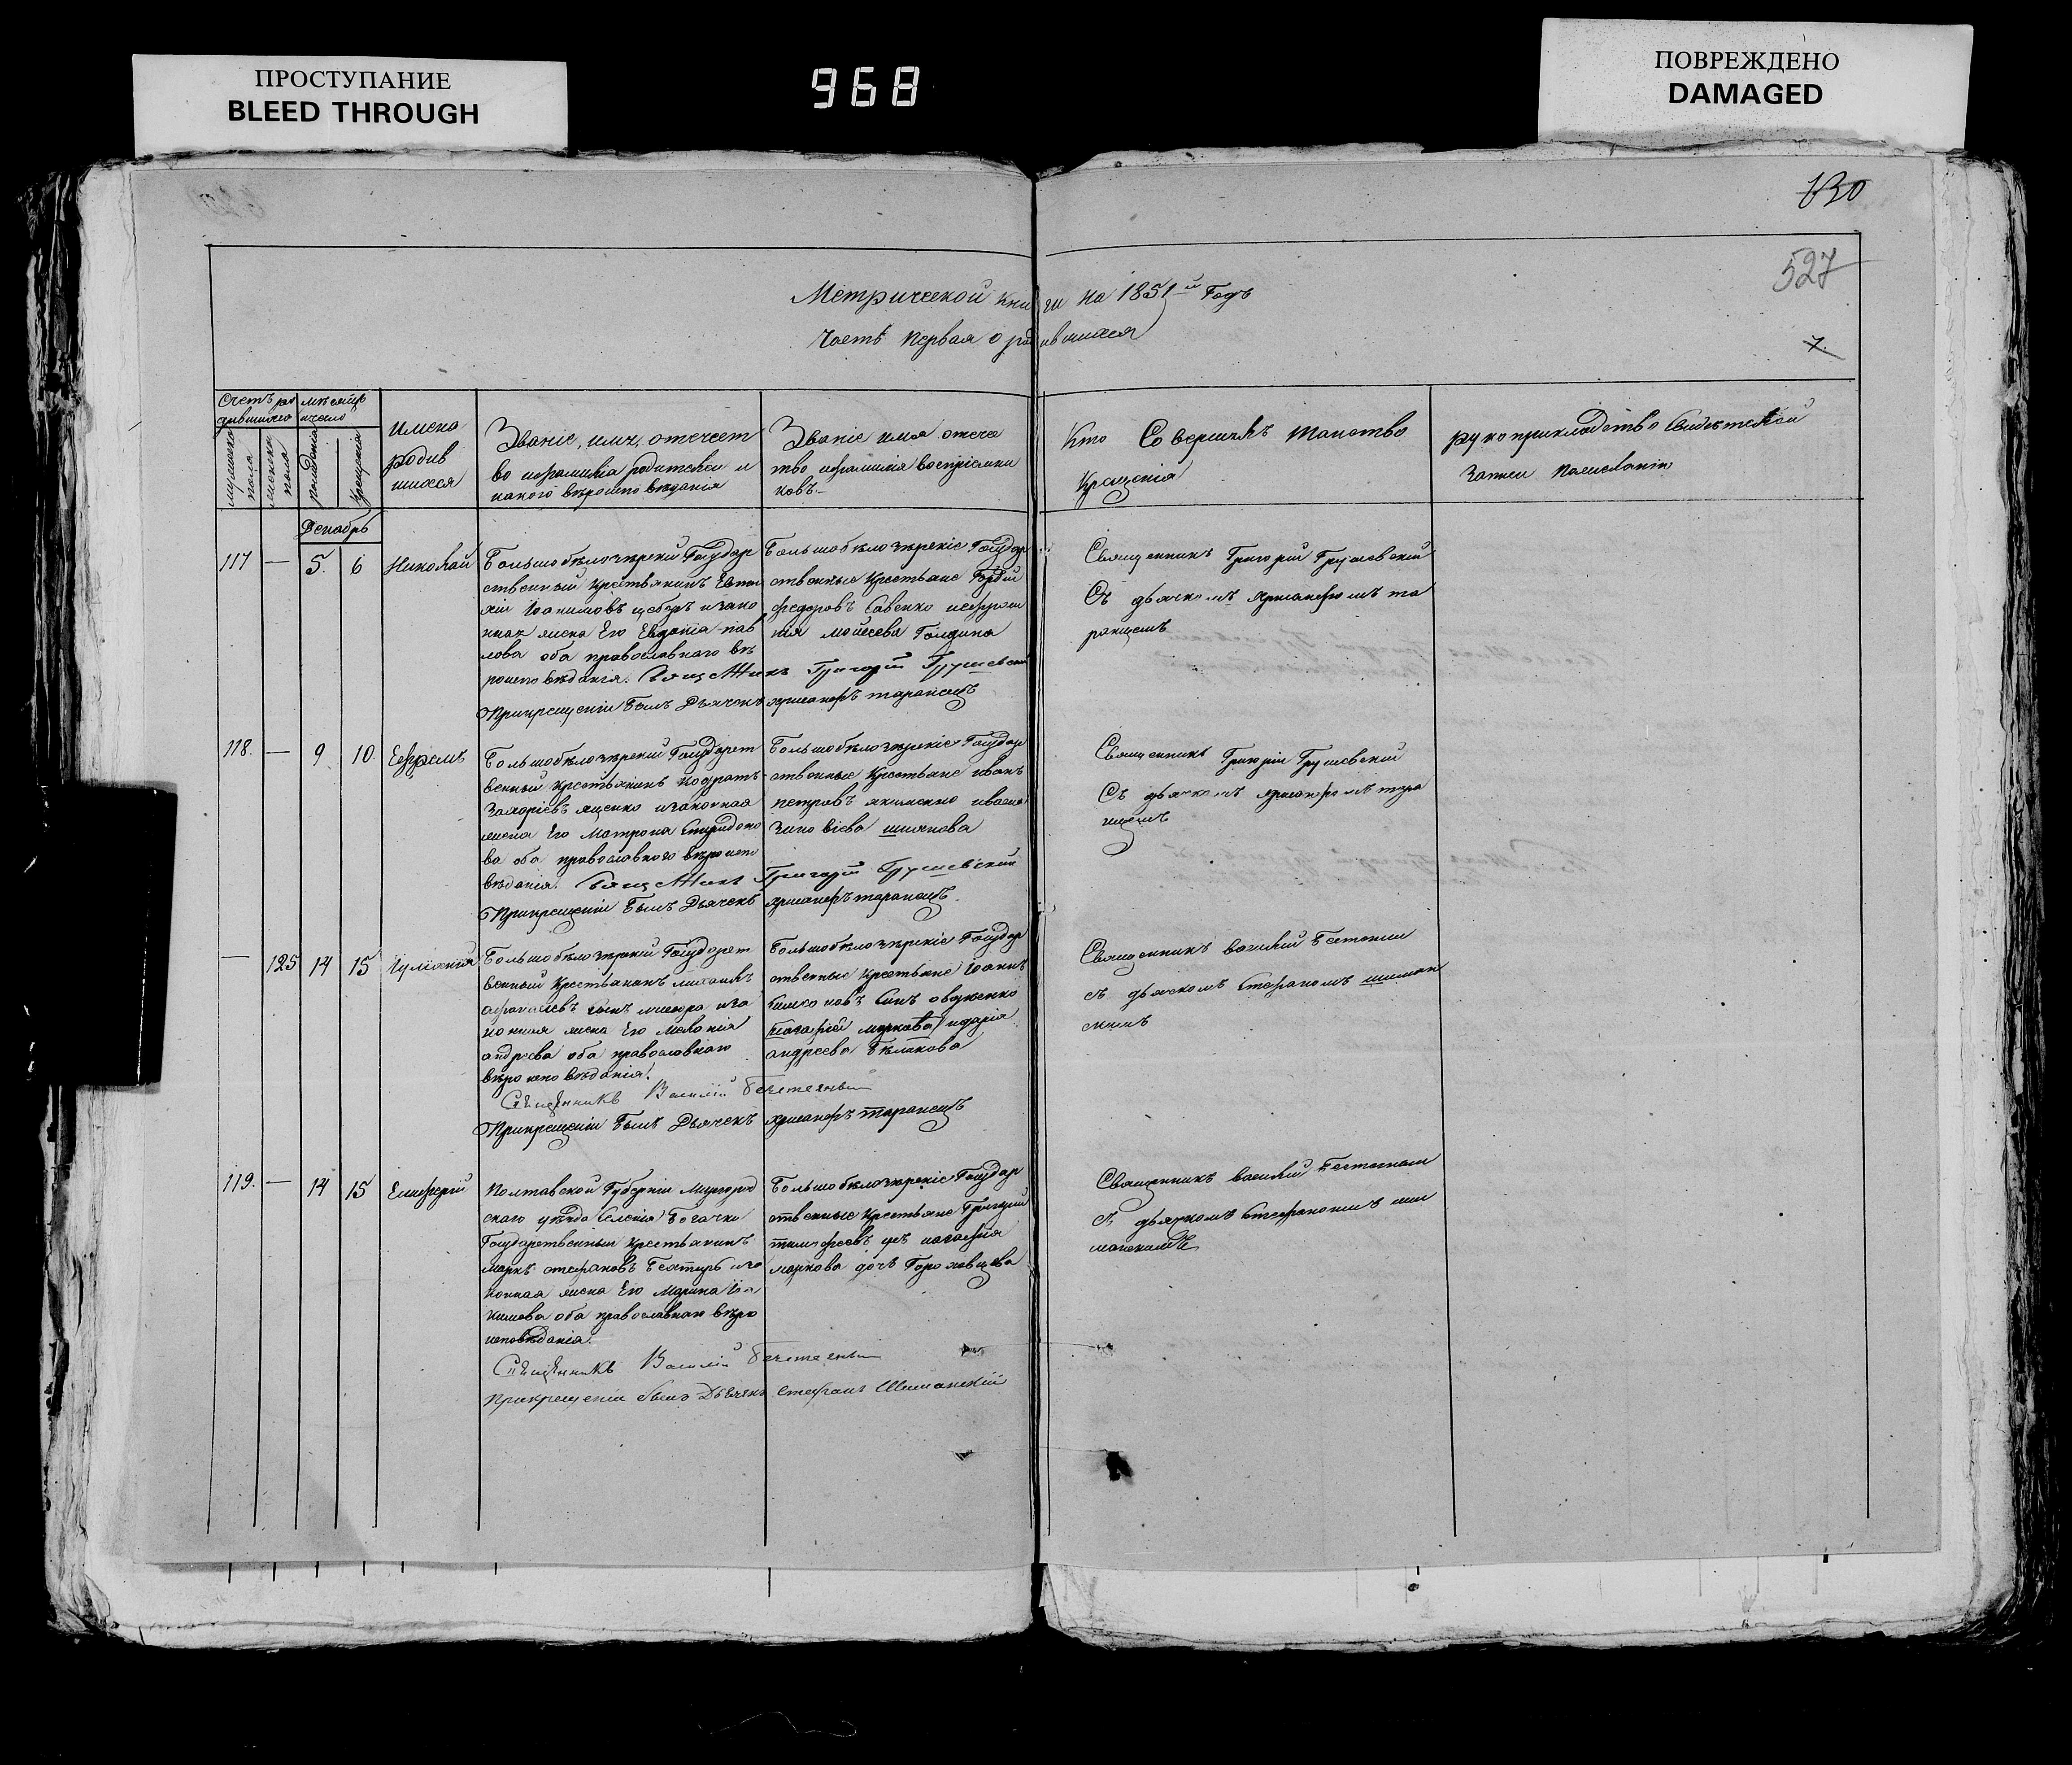 ПРОСТУПАНИЕ
BLEED THROUGH
968
ПОВРЕЖДЕНО
DAMAGED
130
527
Метрической книги на 1851й Годъ
Часть первая о родившихся
7.
Счетъ ро
дившихся
мѣсяцъ
число
мужеска
пола
женска
пола
рожденія
Крещенія
Имена
родив
шихся
Званіе, имя, отечест
во и фамилія родителей и
какого вѣроисповѣданія
Званіе имя отече
тво и фамилія воспріемни
ковъ
Кто Совершилъ таинство
Крещенія
рукоприкладство Свидѣтелей
записи по желанію
Декабрь
117 — 5. 6 Николай
Большобѣлозѣрскій Государ
ственный Крестьянинъ
Іоакимовъ и зако
нная жена Его Евдокія пав
лова оба православнаго вѣ
роисповѣданія. Священникъ Григорій Грушевскій
При крещеніи былъ Дьячекъ Таранецъ
Большобѣлозѣрскіе Государ
ственные Крестьяне Гордій
федоровъ Савенко и евфроси
нія моисеева
Священникъ Григорій Грушевскій
Съ дьячкомъ та
ранцемъ
118. — 9 10 Ефремъ
Большобѣлозѣрскій Государст
венный крестьянинъ кодратъ
Захаріевъ яценко и законная
жена Его Матрона Спиридоно
ва оба православного вѣроиспо
вѣданія. Священникъ Григорій Грушевскій
При крещеніи былъ Дьячекъ таранецъ.
Большобѣлозѣрскіе Государ
ственные Крестьяне иванъ
петровъ якименко
Священникъ Григорій Грушевскій
Съ дьячкомъ тара
нцемъ
— 125 14 15 Іуліянія
Большобѣлозѣрскій Государст
венный Крестьянинъ михаилъ
и за
конная жена Его Меланія
андреева оба православнаго
вѣроисповѣданія.
Священникъ Василій
При крещеніи былъ Дьячекъ таранецъ
Большобѣлозѣрскіе Государ
ственные Крестьяне Іоаннъ
маркова и дарія
андреева Бѣликова
Священникъ василій
съ дьячкомъ Стефаномъ шиман
скимъ
119. — 14 15
Полтавской Губерніи Миргород
скаго уѣзда Селенія Богачки
Государственный крестьянинъ
маркъ стефановъ и за
конная жена Его Марина Іоа
кимова оба православнаго вѣро
исповѣданія.
Священникъ Василій
При крещеніи былъ Дьячекъ Стефанъ Шиманскій
Большобѣлозѣрскіе Государ
ственные Крестьяне Григорій
тимофеевъ
маркова дочь
Священникъ василій
съ дьячкомъ Стефаномъ ши
манскимъ